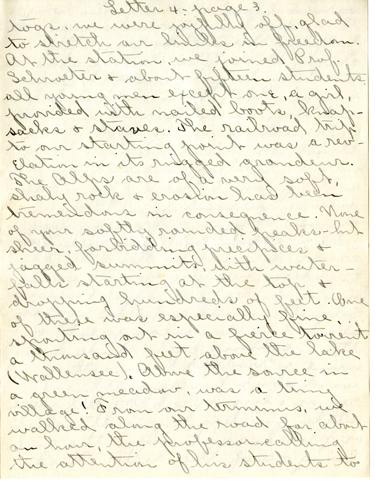 Letter 4 - page 3.
togs, we were joyfully off, glad
to stretch our limbs in freedom.
At the station, we joined Prof.
Schroeter & about fifteen students
all young men except one, a girl,
provided with nailed boots, knap-
sacks & staves. The railroad trip
to our starting point was a rev-
elation in its rugged grandeur.
The Alps are of a very soft,
shaly rock & erosion has been
tremendous in consequence. None
of your softly rounded peaks - but
sheer, forbidding precipices &
jagged summits, with water-
falls starting at the top &
dropping hundreds of feet. One
of these was especially fine,
spouting out in a fierce torrent
a thousand feet above the lake
(Wallensee). Above the source in
a green meadow, was a tiny
village! From our terminus, we
walked along the road for about
an hour, the professor calling
the attention of his students to